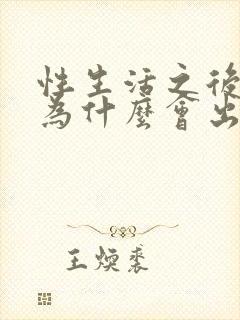 性生活之後
為什麼會出
王煥裘